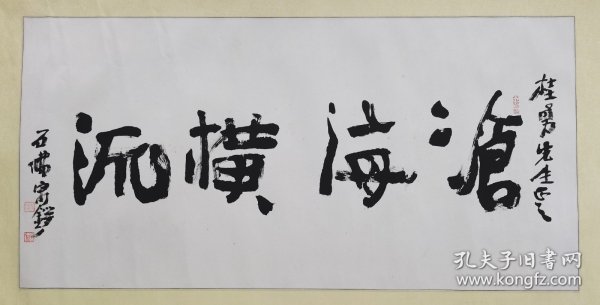 桂勇先生正之
滄海橫流
石佛
孔夫子旧书网
www.kongfz.com